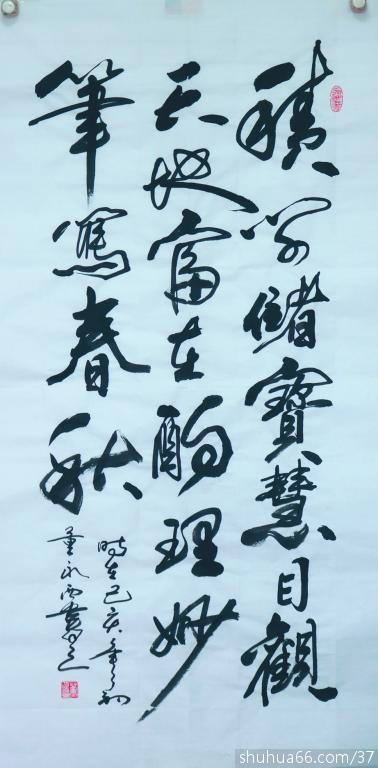 積学儲寶慧目觀
天地富在酌理妙
筆寫春秋
時在己亥年之初
董永書之
shuhua66.com/37